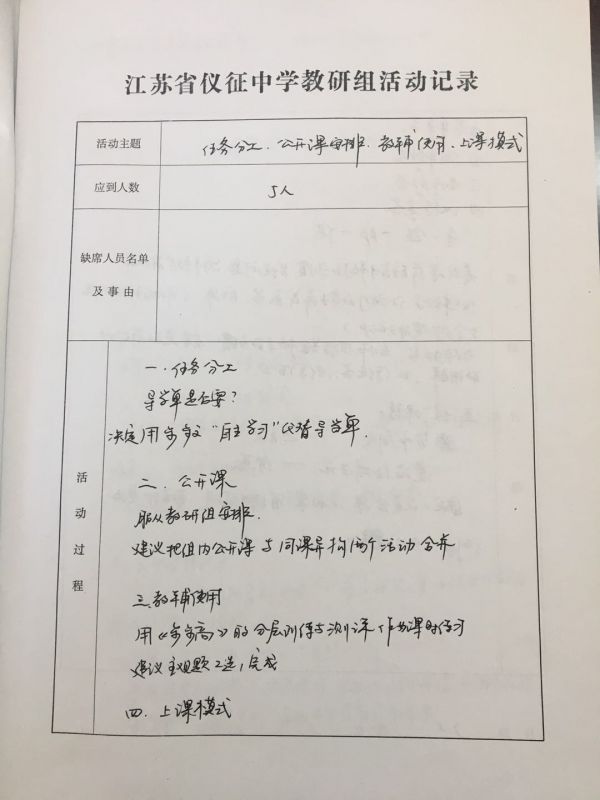 江苏省仪征中学教研组活动记录
活动主题 任务分工、公开课安排、教辅使用、上课模式
应到人数 5人
缺席人员名单
及事由
活动过程
一、任务分工
导学单是否要？
决定用步步高“自主学习”代替导学单.
二、公开课
服从教研组安排.
建议把组内公开课与同课异构两个活动合并
三、教辅使用
用《步步高》的分层训练与测评作为课时练习
建议主观题2选1完成
四、上课模式